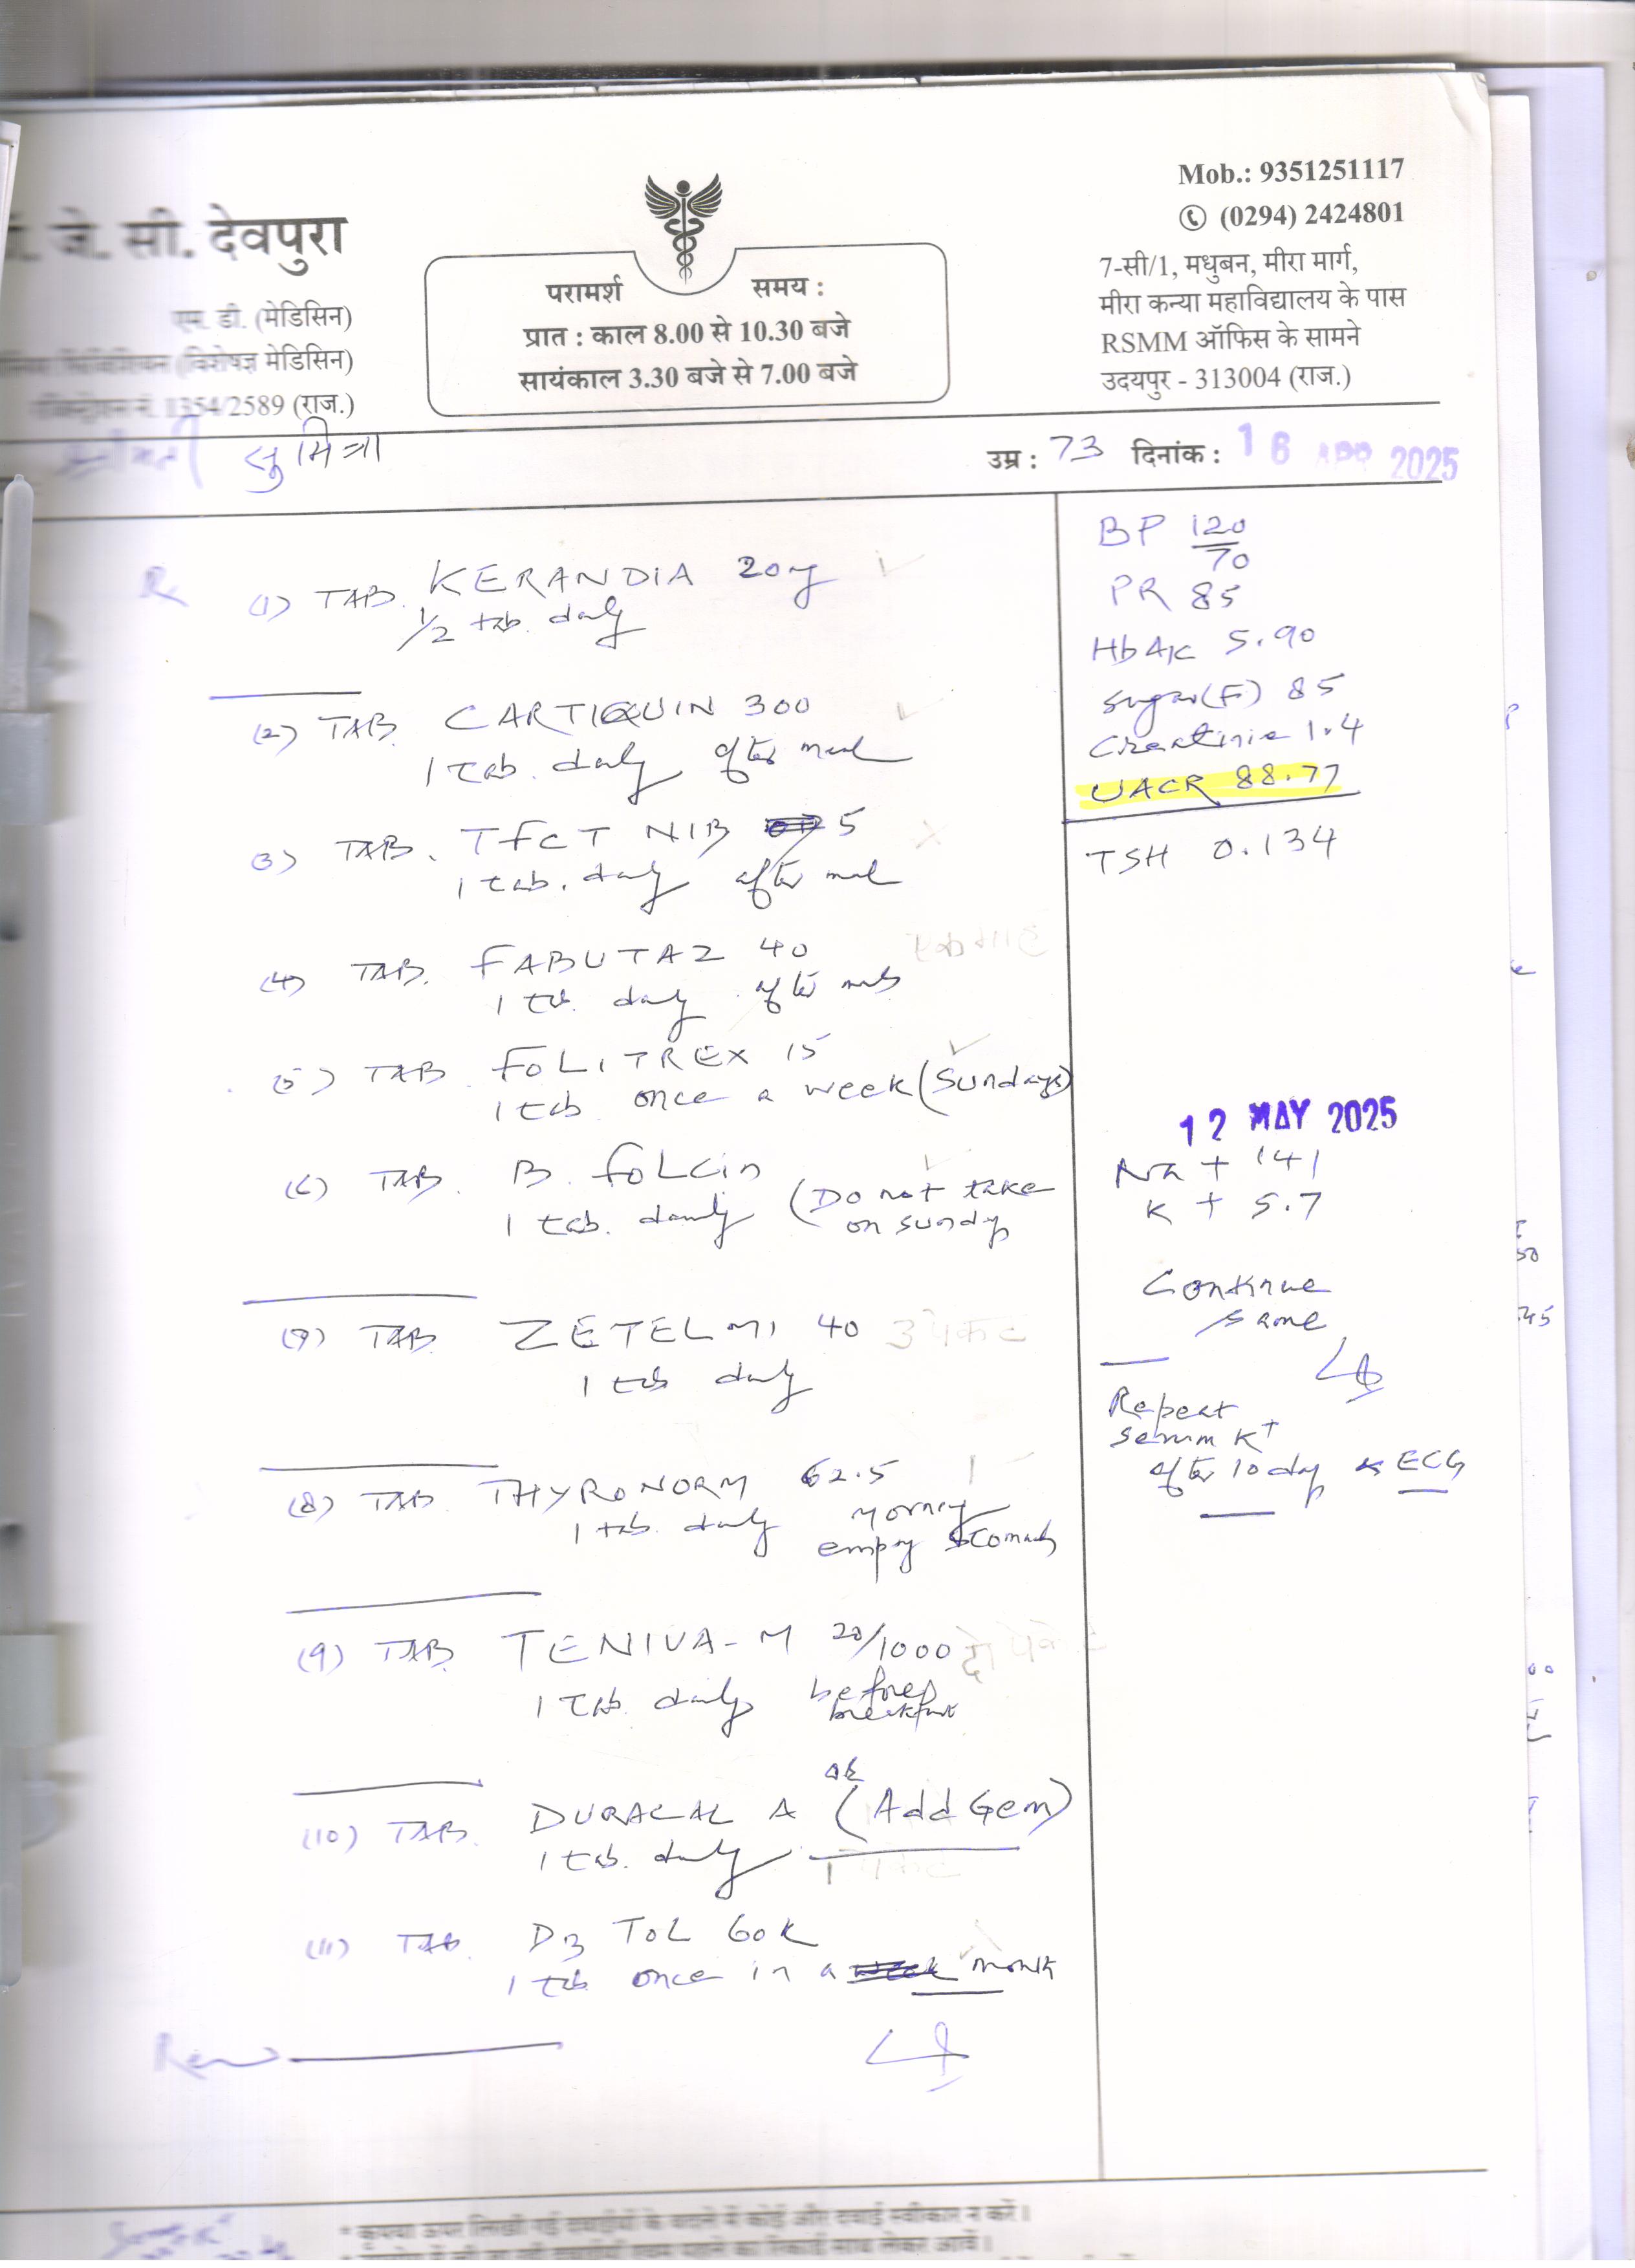 जे. सी. देवपुरा
एम. डी. (मेडिसिन)
(विशेषज्ञ मेडिसिन)
1354/2589 (राज.)
परामर्श समय :
प्रात : काल 8.00 से 10.30 बजे
सायंकाल 3.30 बजे से 7.00 बजे
Mob.: 9351251117
(0294) 2424801
7-सी/1, मधुबन, मीरा मार्ग,
मीरा कन्या महाविद्यालय के पास
RSMM ऑफिस के सामने
उदयपुर - 313004 (राज.)
सुमित्रा
उम्र : 73 दिनांक : 16 APR 2025
(1) TAB. KERANDIA 20mg
1/2 tab. daily
(2) TAB. CARTIQUIN 300
1 tab. daily after meal
(3) TAB. TFCT NIB 5
1 tab. daily after meal
(4) TAB. FABUTAZ 40
1 tab. daily after meals
(5) TAB. FOLITREX 15
1 tab once a week (Sundays)
(6) TAB. B. FOLCIN
1 tab. daily (Do not take
on sunday
(7) TAB ZETELMI 40 3 पैकेट
1 tab daily
(8) TAB THYRONORM 62.5
1 tab. daily morning
empty stomach
(9) TAB. TENIVA-M 20/1000 दो पैकेट
1 tab. daily before
breakfast
(10) TAB. DURACAL A (Add Gem)
1 tab. daily
1 पैकेट
(11) TAB. D3 TOL 60K
1 tab once in a month
BP 120/70
PR 85
HbA1c 5.90
Sugar(F) 85
Creatinine 1.4
UACR 88.77
TSH 0.134
12 MAY 2025
Na + 141
K + 5.7
Continue
same
Repeat
serum K+
after 10 day & ECG